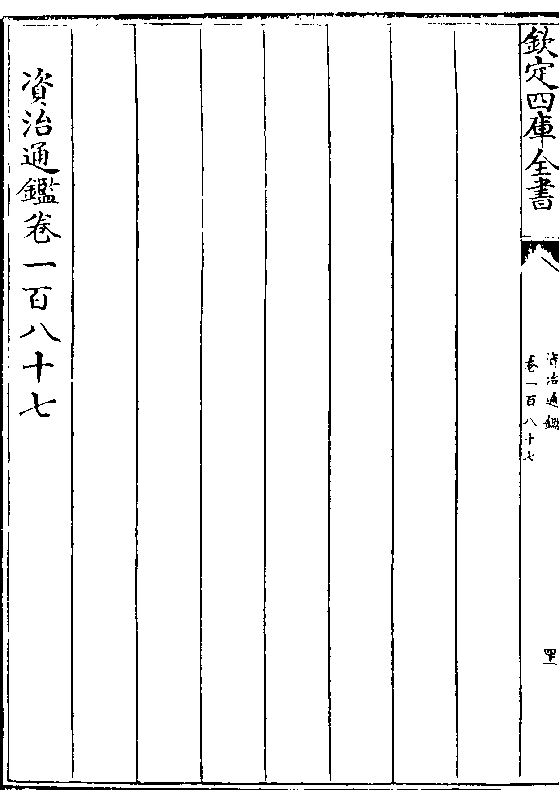 欽定四庫全書
資治通鑑
卷一百八十七
罒一
資治通鑑卷一百八十七